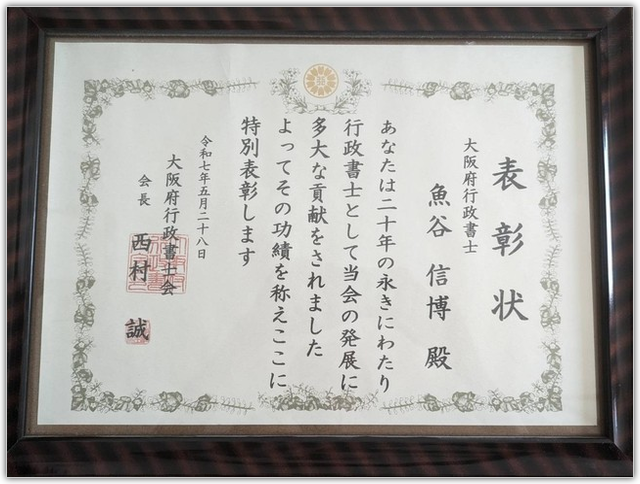 表彰状
大阪府行政書士
魚谷 信博 殿
あなたは二十年の永きにわたり
行政書士として当会の発展に
多大な貢献をされました
よってその功績を称えここに
特別表彰します
令和七年五月二十八日
大阪府行政書士会
会長 西村 誠